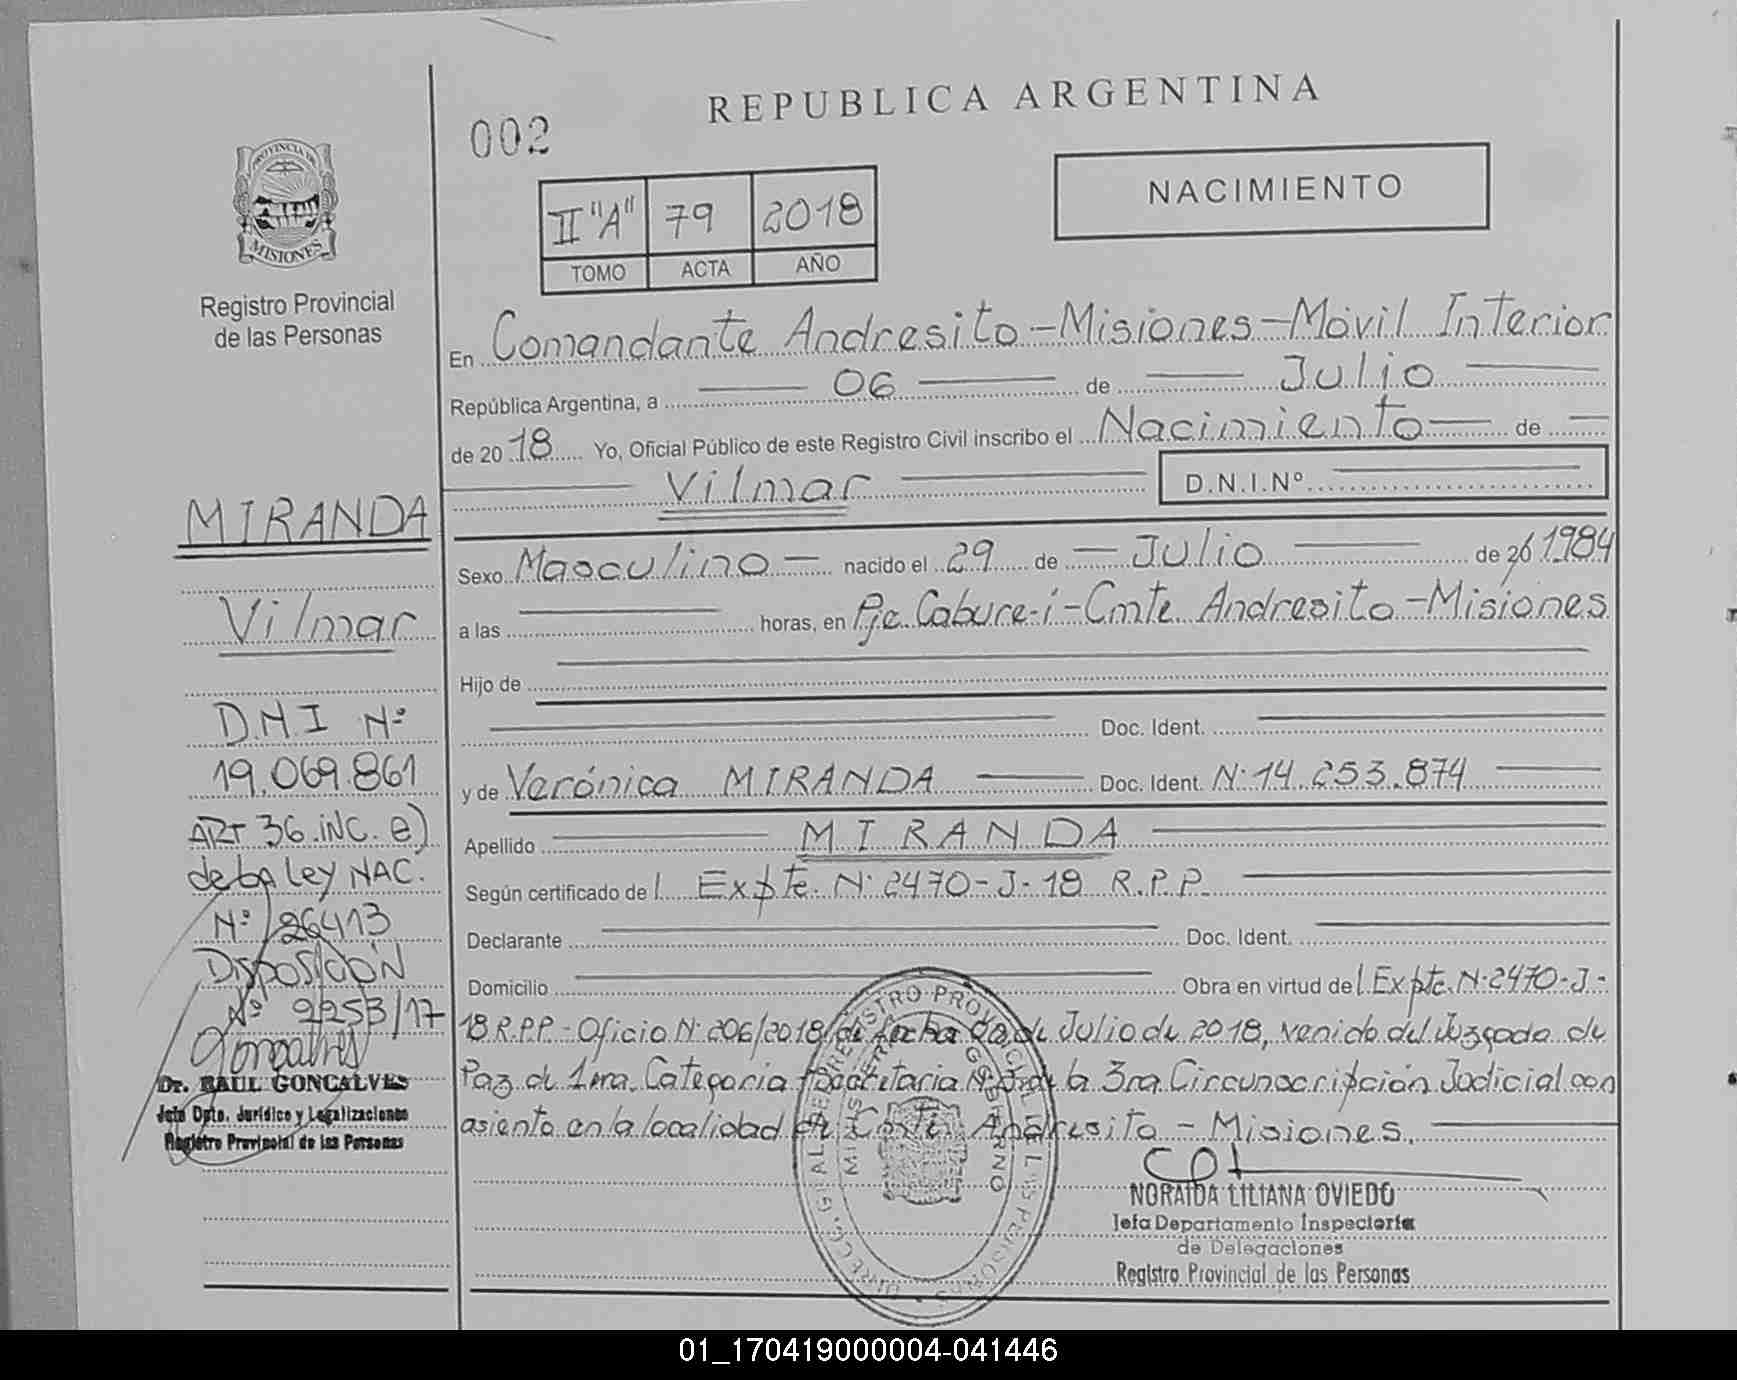 REPUBLICA ARGENTINA
002
PROVINCIA DE
MISIONES
Registro Provincial
de las Personas
II "A" 79 2018
TOMO ACTA AÑO
NACIMIENTO
En Comandante Andresito - Misiones - Móvil Interior
República Argentina, a 06 de Julio
de 20 18 Yo, Oficial Público de este Registro Civil inscribo el Nacimiento de
Vilmar D.N.I.Nº
Sexo Masculino nacido el 29 de Julio de 1984
a las horas, en Pje. Cabure-i - Cmte. Andresito - Misiones
Hijo de
Doc. Ident.
y de Verónica MIRANDA Doc. Ident. Nº 14.253.874
Apellido MIRANDA
Según certificado del Expte. Nº 2470-J-18 R.P.P.
Declarante Doc. Ident.
Domicilio Obra en virtud del Expte. Nº 2470-J-
18 R.P.P. - Oficio Nº 206/2018 de fecha de Julio de 2018, venido del Juzgado de
Paz de 1ra. Categoria Secretaria de la 3ra. Circunscripción Judicial con
asiento en la localidad de Cmte. Andresito - Misiones.
NORAIDA LILIANA OVIEDO
Jefa Departamento Inspectoria
de Delegaciones
Registro Provincial de las Personas
MIRANDA
Vilmar
D.N.I Nº
19.069.861
ART 36. inc. e)
de la Ley NAC.
Nº 26413
Disposición
Nº 2253/17
Goncalves
Dr. RAUL GONCALVES
Jefe Dpto. Jurídico y Legalizaciones
Registro Provincial de las Personas
01_170419000004-041446